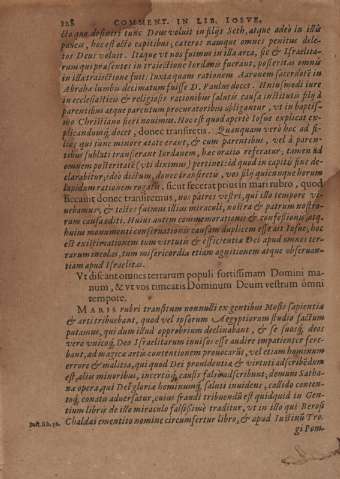 128 COMMENT. IN LIB. IOSVE,
cta quæ deposiri tunc Deus voluit in filijs Seth, atque adeo in illis
paucis, hoc est octo capitibus, cæteros namque omnes penitus dele-
tos Deus voluit. Itaque vt nos fuimus in illa arca, sic & Israelita-
rum qui præsentes in traiectione Iordanis fuerant, posteritas omnis
in illa traiectione fuit. Iuxta quam rationem Aaronem sacerdotē in
Abrahæ lumbis decimatum fuisse D. Paulus docet. Huiusmodi iure
in ecclesiasticis & religiosis rationibus salutis causa institutis filij à
parentibus atque parentum procuratoribus obligantur, vt in baptis-
mo Christiano fieri nouimus. Hoc est quod apertè Iosue explicat ex-
plicandumq́; docet, donec transiretis. Quanquam verò hoc ad fi-
lios qui tunc minore ætate erant, & cum parentibus, vel à paren-
tibus sublati transierant Iordanem, hæc oratio referatur, tamen ad
omnem posteritatē (vti diximus) pertinet: id quod in capitis fine de-
clarabitur, ideo dictum, donec transiretis, vos filij quicunque horum
lapidum rationem rogatis, sicut fecerat prius in mari rubro, quod
siccauit donec transiremus, nos patres vestri, qui illo tempore vi-
uebamus, & testes sumus illius miraculi, nostra & patrum nostro-
rum causa editi. Huius autem commemorationis & confessionis, atq́;
huius monumenti conseruationis causam duplicem esse ait Iosue, hoc
est existimationem tum virtutis & efficientiæ Dei apud omnes ter-
rarum incolas, tum misericordiæ etiam agnitionem atque obseruan-
tiam apud Israelitas.
Vt discant omnes terrarum populi fortissimam Domini ma-
num, & vt vos timeatis Dominum Deum vestrum omni
tempore.
MARIS rubri transitum nonnulli ex gentibus Mosis sapientia
& artis tribuebant, quod vel ipsorum Aegyptiorum studio factum
putamus, qui dum illud opprobrium declinabant, & se suosq́; deos
vero vnicoq́; Deo Israelitarum inuisos esse audire impatienter fere-
bant, ad magicæ artis contentionem prouocarūt, vel etiam hominum
errore & malitia, qui quod Dei prouidentiæ & virtuti adscribēdum
est, alijs minoribus, incertisq́; causis falsò adscribunt, demum Satha-
næ opera, qui Dei gloriæ hominumq́; saluti inuidens, callido conten-
toq́; conatu aduersatur, cuius fraudi tribuendū est quidquid in Gen-
tium libris de illo miraculo falsissimè traditur, vt in illo qui Berosi
Chaldæi ementito nomine circumfertur libro, & apud Iustinū Tro-
Iust. lib. 36.
gi Pom-